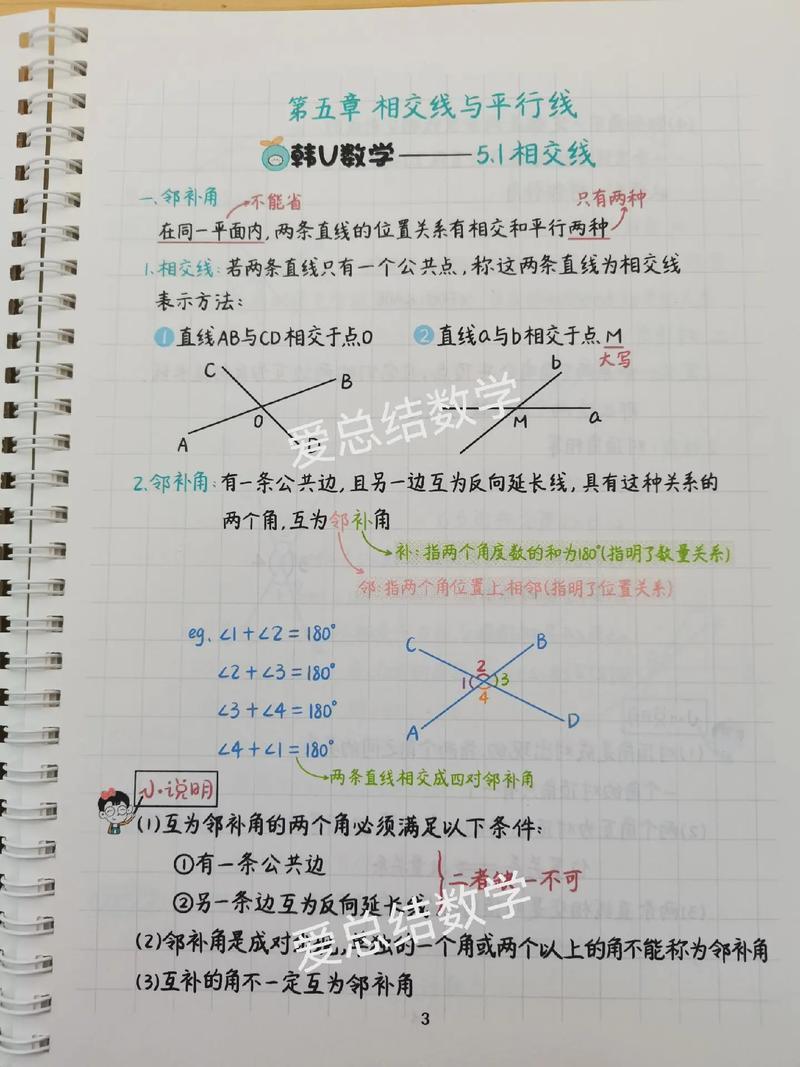 第五章 相交线与平行线
韩U数学——5.1相交线
一、邻补角 不能省 只有两种
在同一平面内,两条直线的位置关系有相交和平行两种
1.相交线:若两条直线只有一个公共点,称这两条直线为相交线
表示方法:
①直线AB与CD相交于点O ②直线a与b相交于点M
大写
C B b
O M a
A D
爱总结数学
2.邻补角:有一条公共边,且另一边互为反向延长线,具有这种关系的
两个角,互为邻补角
补:指两个角度数的和为180°(指明了数量关系)
邻:指两个角位置上相邻(指明了位置关系)
eg. ∠1+∠2=180°
∠2+∠3=180°
∠3+∠4=180°
∠4+∠1=180°
C B
2
1 3
4
A D
两条直线相交成四对邻补角
小说明
(1)互为邻补角的两个角必须满足以下条件:
①有一条公共边
②另一条边互为反向延长线
二者缺一不可
爱总结数学
(2)邻补角是成对出现,单独的一个角或两个以上的角不能称为邻补角
(3)互补的角不一定互为邻补角
3